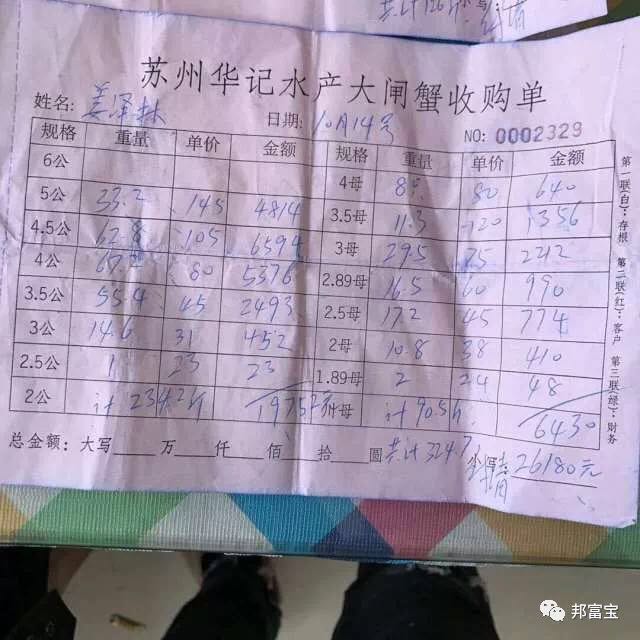 苏州华记水产大闸蟹收购单
姓名: 姜泽林 日期: 10月14号 NO: 0002329
规格 重量 单价 金额 规格 重量 单价 金额
6公 4母 80 640
5公 33.2 145 4814 3.5母 11.3 120 1356
4.5公 62.8 105 6594 3母 29.5 2212
4公 80 5376 2.89母 16.5 60 990
3.5公 55.4 45 2493 2.5母 17.2 45 774
3公 14.6 31 452 2母 10.8 38 410
2.5公 1 23 23 1.89母 2 24 48
2公 计234.2斤 母 计90.5斤 6430
总金额: 大写 万 仟 佰 拾 圆 共计324.7 26180元
第一联白:存根 第二联红:客户 第三联绿:财务
邦富宝